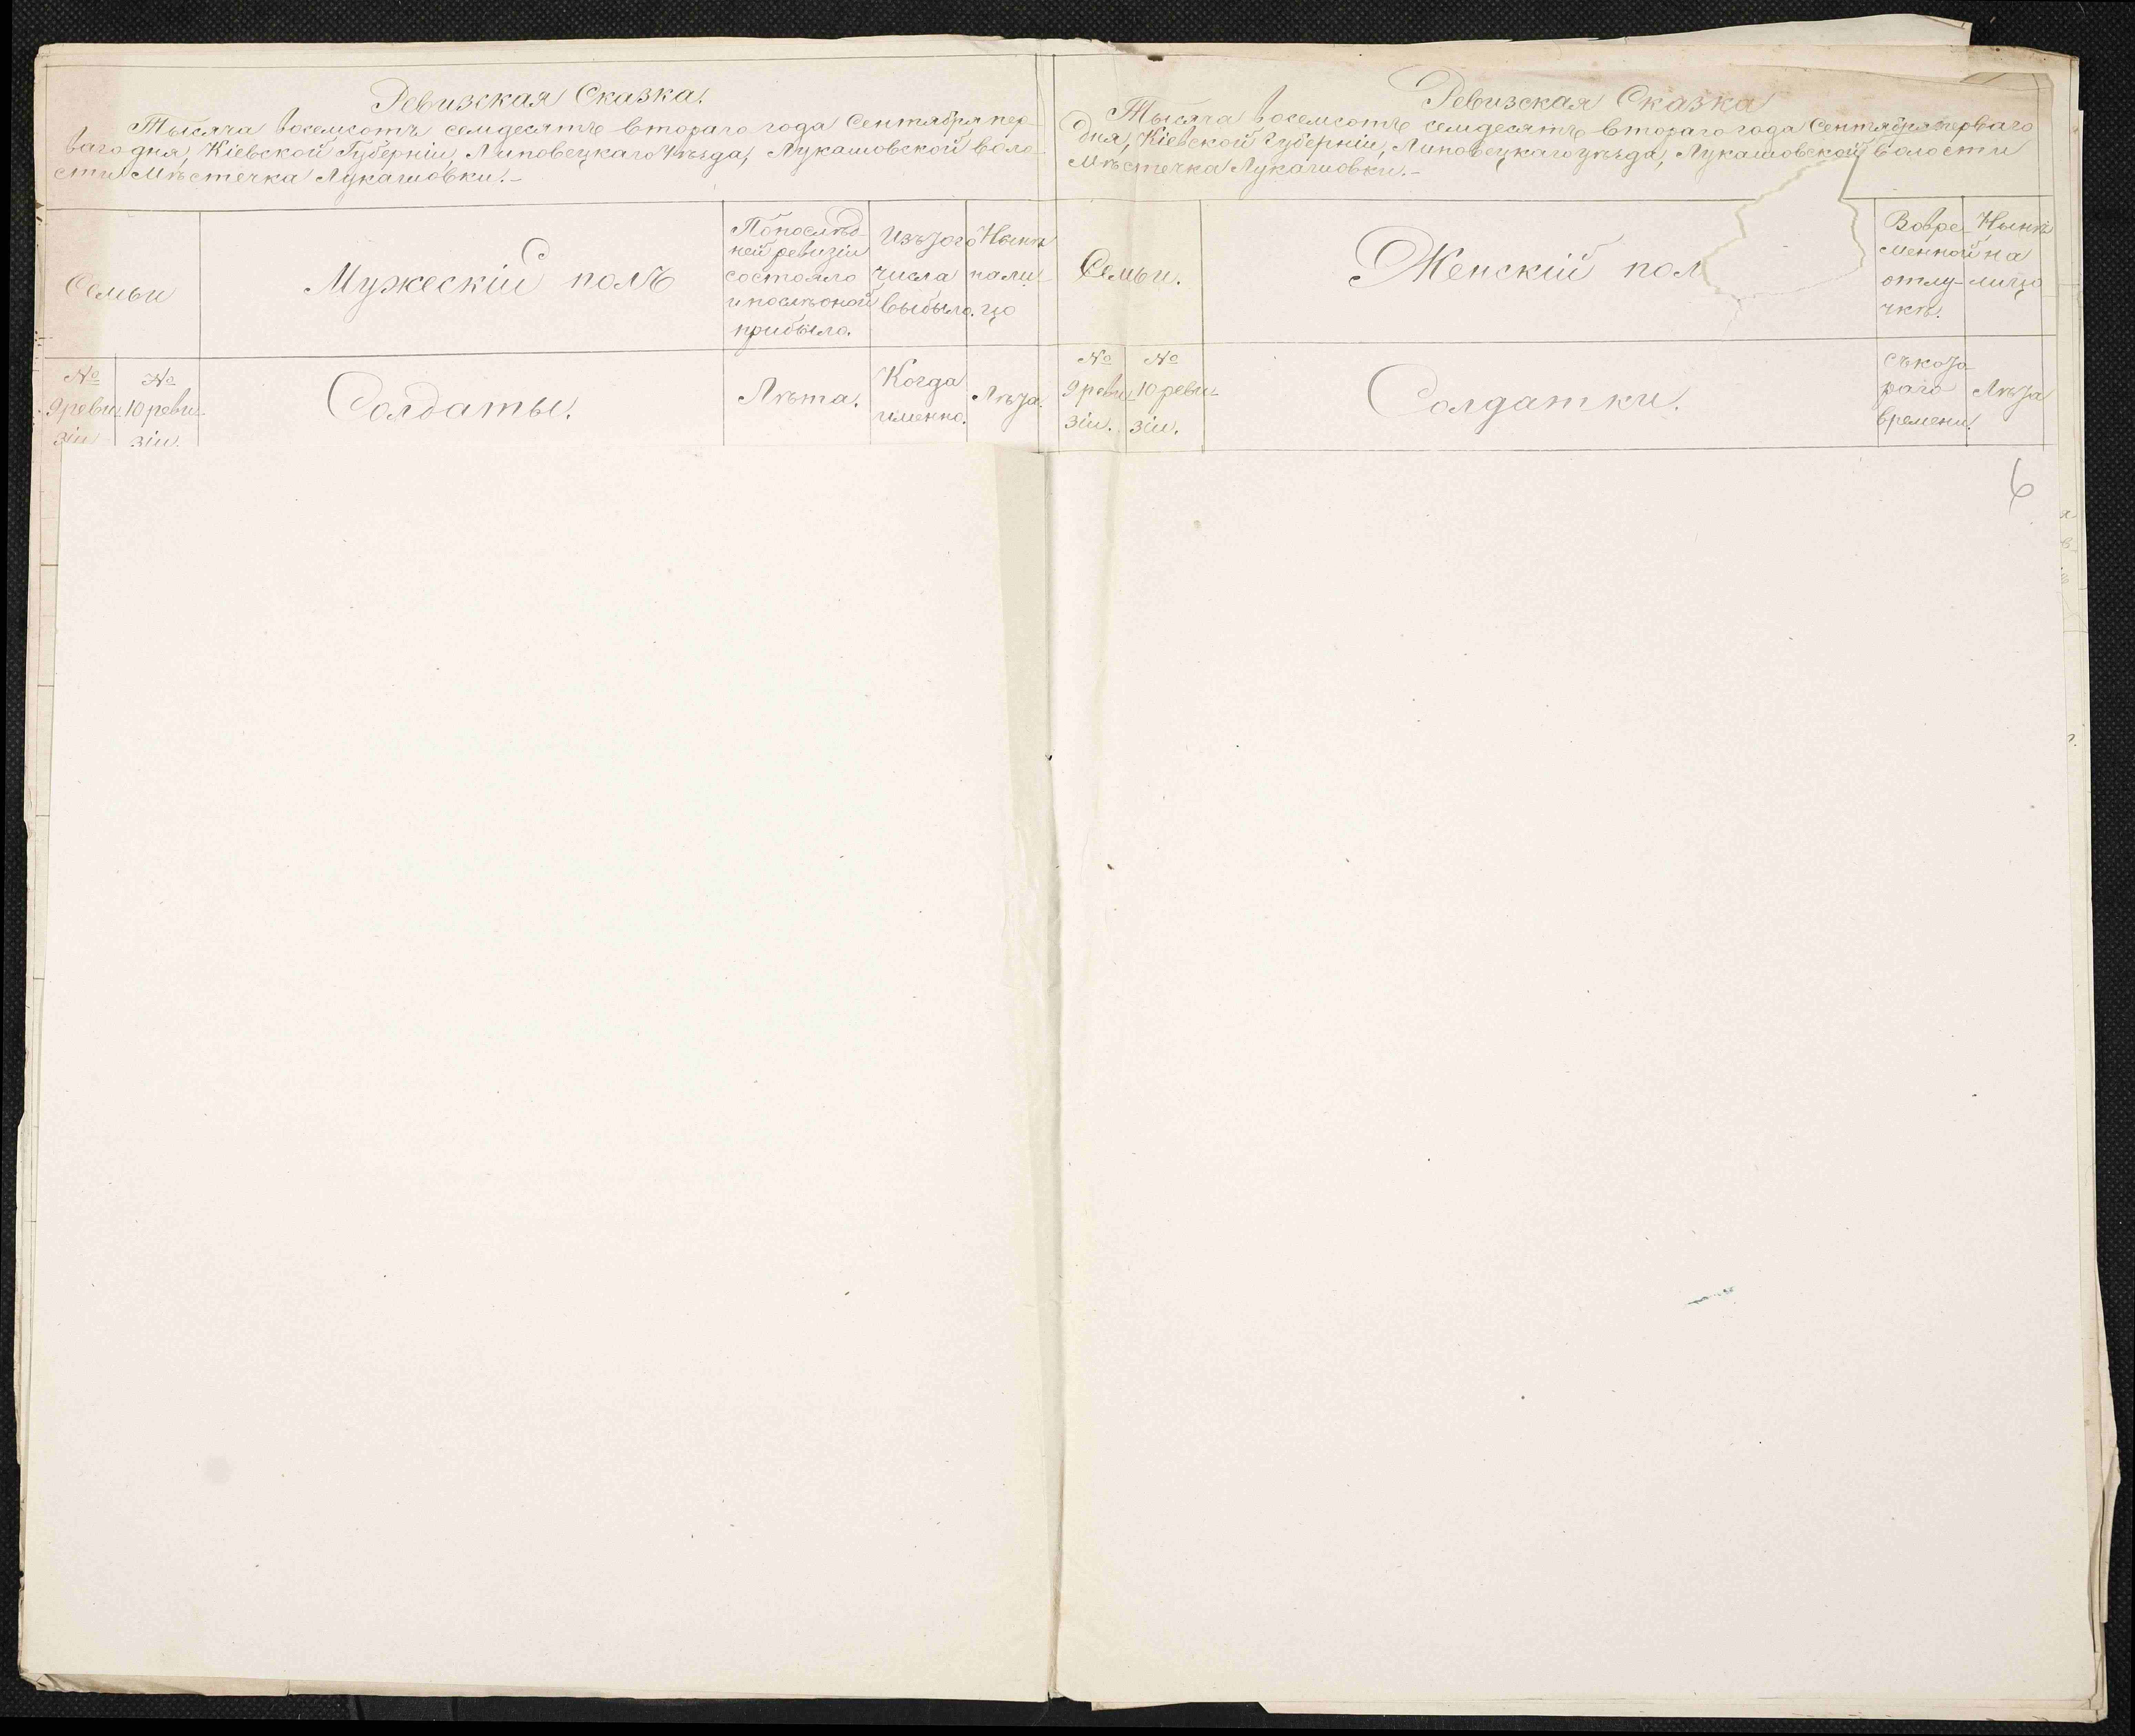 Ревизская Сказка.
Тысяча восемсотъ семдесятъ втораго года Сентября пер-
ваго дня, Кіевской Губерніи, Липовецкаго Уѣзда, Лукашовской воло-
сти Мѣстечка Лукашовки.-
Семьи
Мужескій полъ
По послѣд-
ней ревизіи
состояло
и послѣ оной
прибыло.
Изъ того
числа
выбыло.
Нынѣ
на ли-
цо
№
9 реви-
зіи
№
10 реви-
зіи.
Солдаты.
Лѣта.
Когда
именно.
Лѣта.
Ревизская Сказка
Тысяча восемсотъ семдесятъ втораго года Сентября перваго
дня, Кіевской Губерніи, Липовецкаго уѣзда, Лукашовской волости
Мѣстечка Лукашовки.-
Семьи.
Женскій пол
Во вре-
менной
отлу-
чкѣ.
Нынѣ
на
лицо
№
9 реви-
зіи.
№
10 реви-
зіи.
Солдатки.
Съ кото-
раго
времени.
Лѣта
6